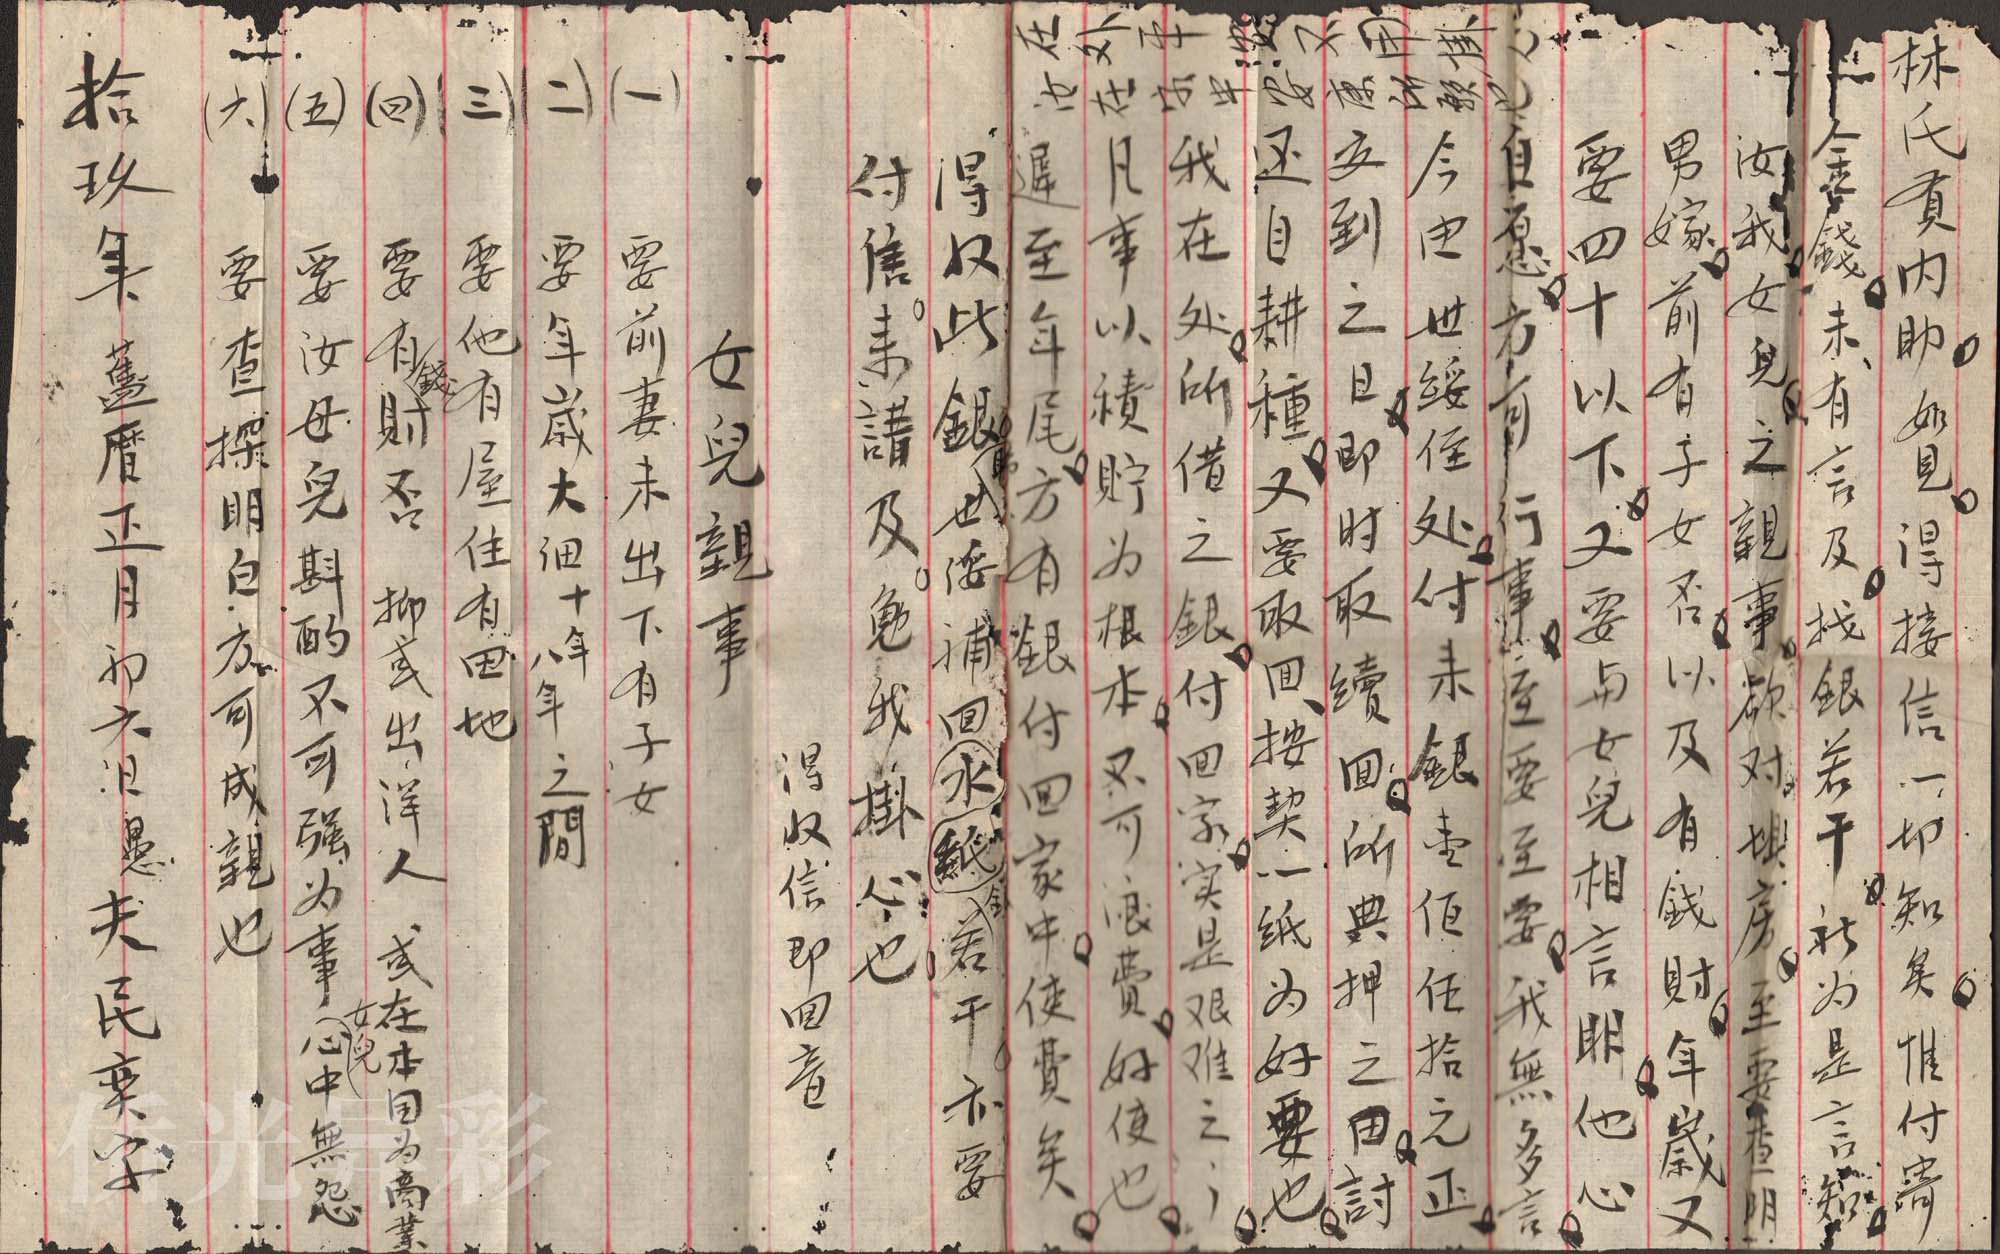 林氏賢內助妝見得接信一切知矣惟付寄
金錢未有言及找銀若干祈为是言知
汝我女兒之親事欲对塡房至要查明
男嫁前有子女否以及有錢財年歲又
要四十以下又要与女兒相言明他心
自愿方可行事至要至要我無多言
今由世綏侄处付来銀壹佰伍拾元正
交到之日即时取續回所典押之田討
还自耕種又要取回按契一纸为好要也
我在处所借之銀付回家实是艰难之
凡事以積貯为根本不可浪費好使也
遲至年尾方有銀付回家中使費矣
在外平安不用掛心
得收此銀世綏補回水紙若干亦要
付信来講及免我掛心也
得收信即回音
女兒親事
(一) 要前妻未出下有子女
(二) 要年歲大細十年八年之間
(三) 要他有屋住有田地
(四) 要有錢財否 抑或出洋人 或在本国为商業
(五) 要汝母兒斟酌不可强为事女兒心中無怨
(六) 要查探明白方可成親也
拾玖年舊曆正月初六日愚夫民業字
侨光异彩